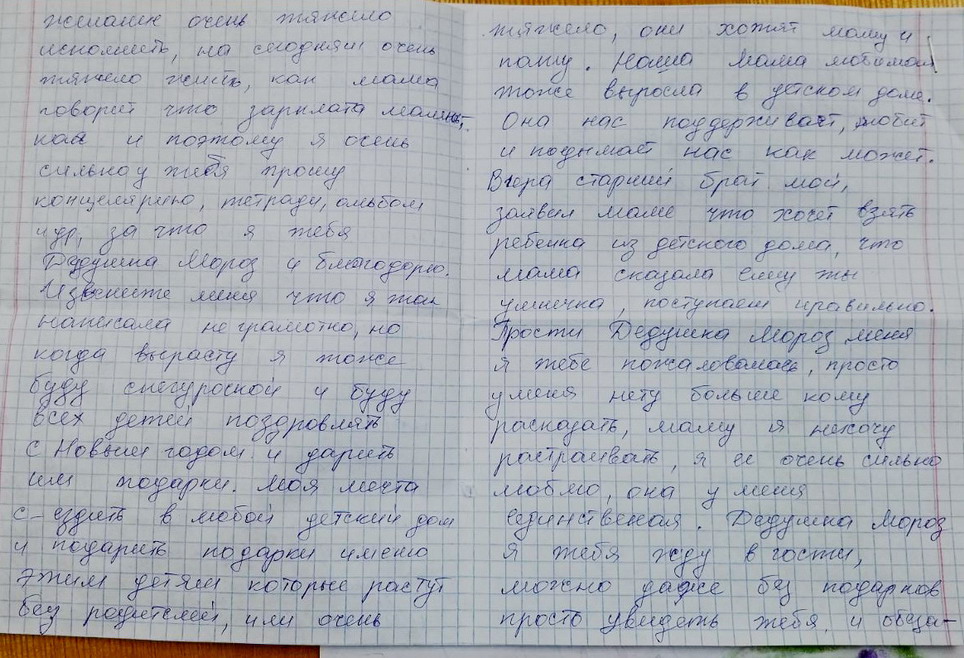 желание очень тяжело
исполнить, на сегодняш очень
тяжело жить, как мама
говорит что зарплата малень,
кая и поэтому я очень
сильно у тебя прошу
концелярию, тетради, альбом
идр, за что я тебя
Дедушка Мороз и благодорю.
Извените меня что я так
написала не грамотно, но
когда вырасту я тоже
буду снегурочкой и буду
всех детей поздровлять
с Новым годом и дарить
им подарки. Моя мечта
с-ездить в любой детский дом
и подарить подарки имено
этим детям которые растут
без родителей, или очень
тяжело, они хотят маму и
папу. Наша мама любимая
тоже выросла в детском доме.
Она нас поддерживает, любит
и подымает нас как может.
Вчера старший брат мой,
заявил маме что хочет взять
ребенка из детского дома, что
мама сказала ему ты
умничка, поступаеш правильно.
Прости Дедушка Мороз меня
я тебе пожаловалась, просто
у меня нету больше кому
расказать, маму я нехочу
растраивать, я ее очень сильно
люблю, она у меня
единственая. Дедушка Мороз
я тебя жду в гости,
можно даже без подарков
просто увидеть тебя и обеща-